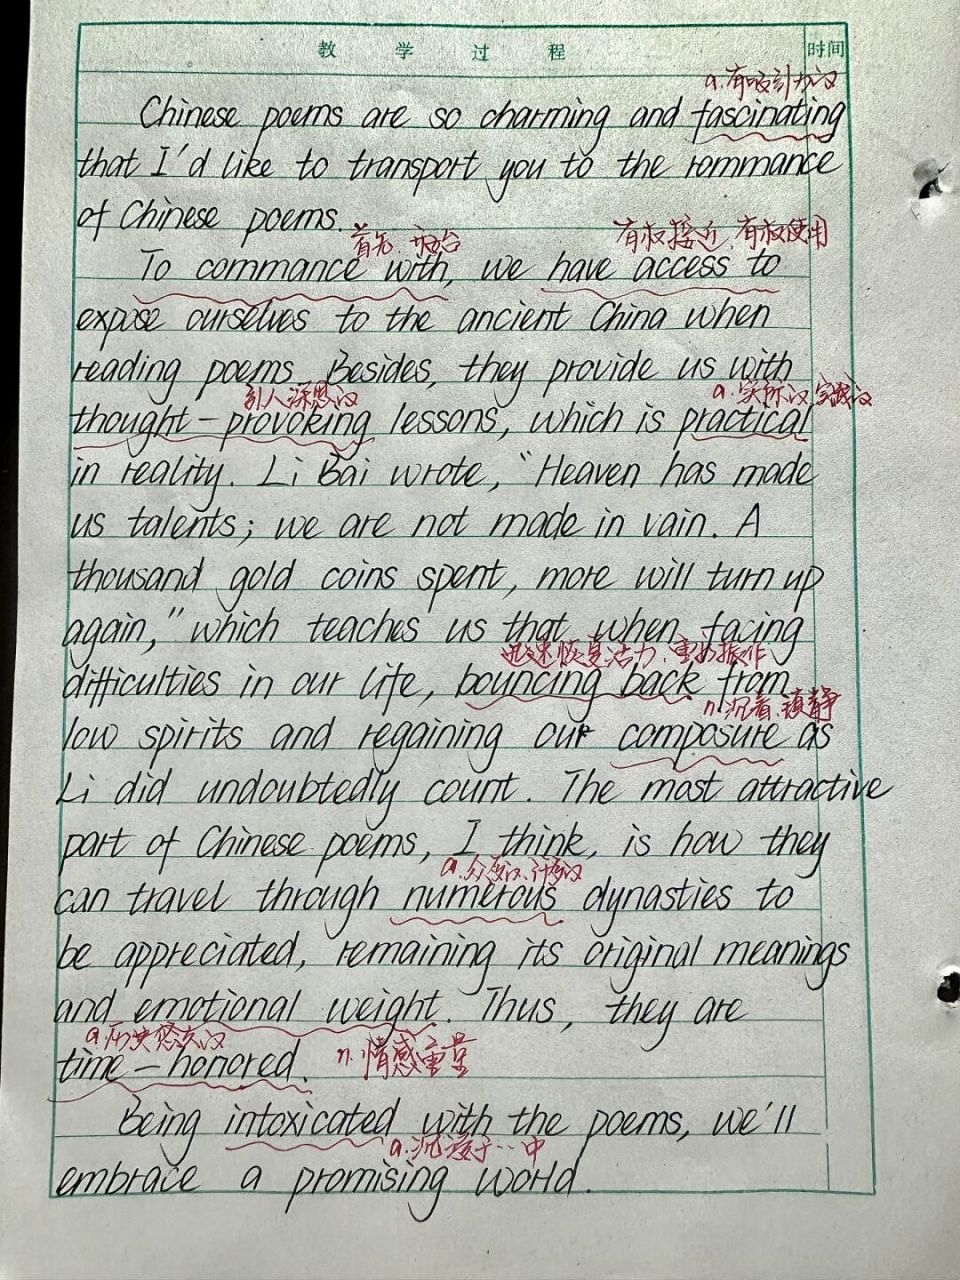 教 学 过 程 时间
a.有吸引力的
Chinese poems are so charming and fascinating
that I'd like to transport you to the rommance
of Chinese poems.
首先 开始 有权接近、有权使用
To commance with, we have access to
expose ourselves to the ancient China when
reading poems. Besides, they provide us with
引人深思的 a.实际的、实践的
thought-provoking lessons, which is practical
in reality. Li Bai wrote, "Heaven has made
us talents; we are not made in vain. A
thousand gold coins spent, more will turn up
again," which teaches us that when facing
迅速恢复活力、重新振作
difficulties in our life, bouncing back from
n.沉着、镇静
low spirits and regaining our composure as
Li did undoubtedly count. The most attractive
part of Chinese poems, I think, is how they
a.众多的、许多的
can travel through numerous dynasties to
be appreciated, remaining its original meanings
and emotional weight. Thus, they are
a.历史悠久的
time-honored. n.情感重量
Being intoxicated with the poems, we'll
a.沉浸于…中
embrace a promising world.